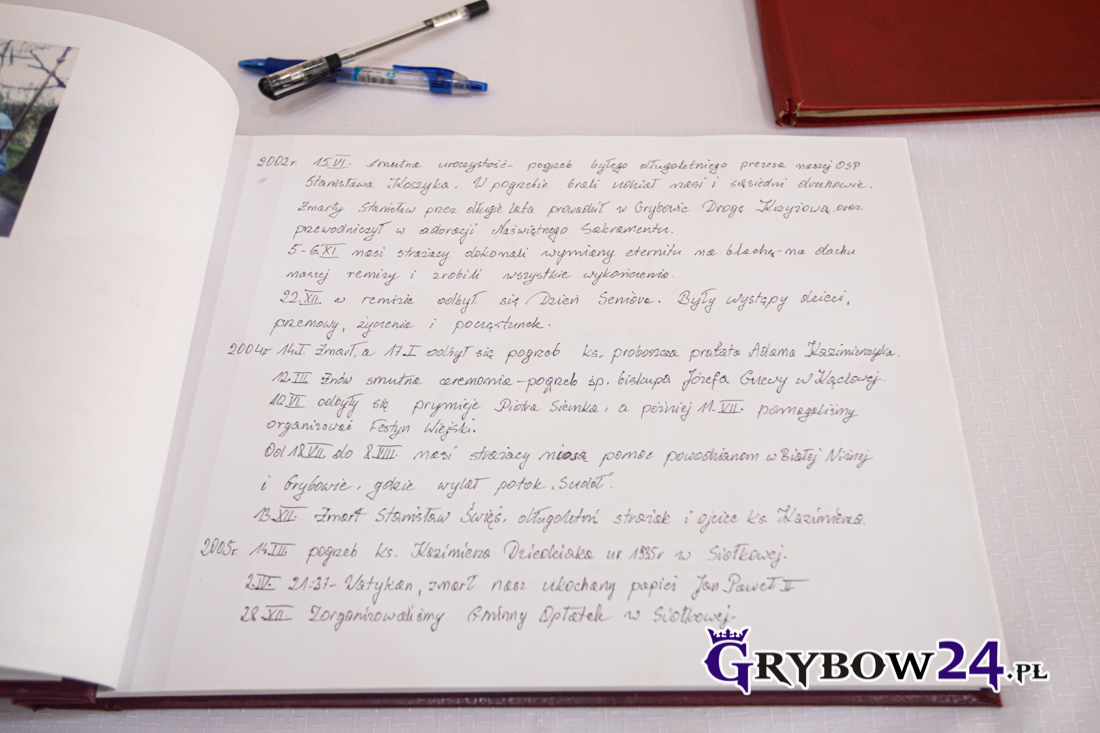 2002r. 15.VI. smutna uroczystość- pogrzeb byłego długoletniego prezesa naszej OSP
Stanisława Koszyka. W pogrzebie brali udział nasi i sąsiedni druhowie.
Zmarły Stanisław przez długie lata prowadził w Grybowie Drogę Krzyżową, oraz
przewodniczył w adoracji Najświętnego Sakramentu.
5-6.XI. nasi strażacy dokonali wymiany eternitu na blachę-na dachu
naszej remizy i zrobili wszystkie wykończenia.
22.XII. w remizie odbył się Dzień Seniora. Były występy dzieci,
przemowy, życzenia i poczęstunek.
2004r 14.I zmarł, a 17.I odbył się pogrzeb ks. proboszcza prałata Adama Kazimierczyka.
12.III Znów smutna ceremonia-pogrzeb śp. biskupa Józefa Gucwy w Kąclowej.
10.VI odbyły się prymicje Piotra Siemka, a później 11.VII. pomagaliśmy
organizować Festyn Wiejski.
Od 18.VII. do 8.VIII. nasi strażacy niosą pomoc powodzianom w Białej Niżnej
i Grybowie, gdzie wylał potok „Sudół".
13.XII. Zmarł Stanisław Święs, długoletni strażak i ojciec ks. Kazimierza.
2005r. 14.III. pogrzeb ks. Kazimierza Dziedziaka ur 1935r w Siołkowej.
2.IV. 21:37- Watykan, zmarł nasz ukochany papież Jan Paweł II
28.XII Zorganizowaliśmy Gminny Opłatek w Siołkowej.
GRYBOW24.PL